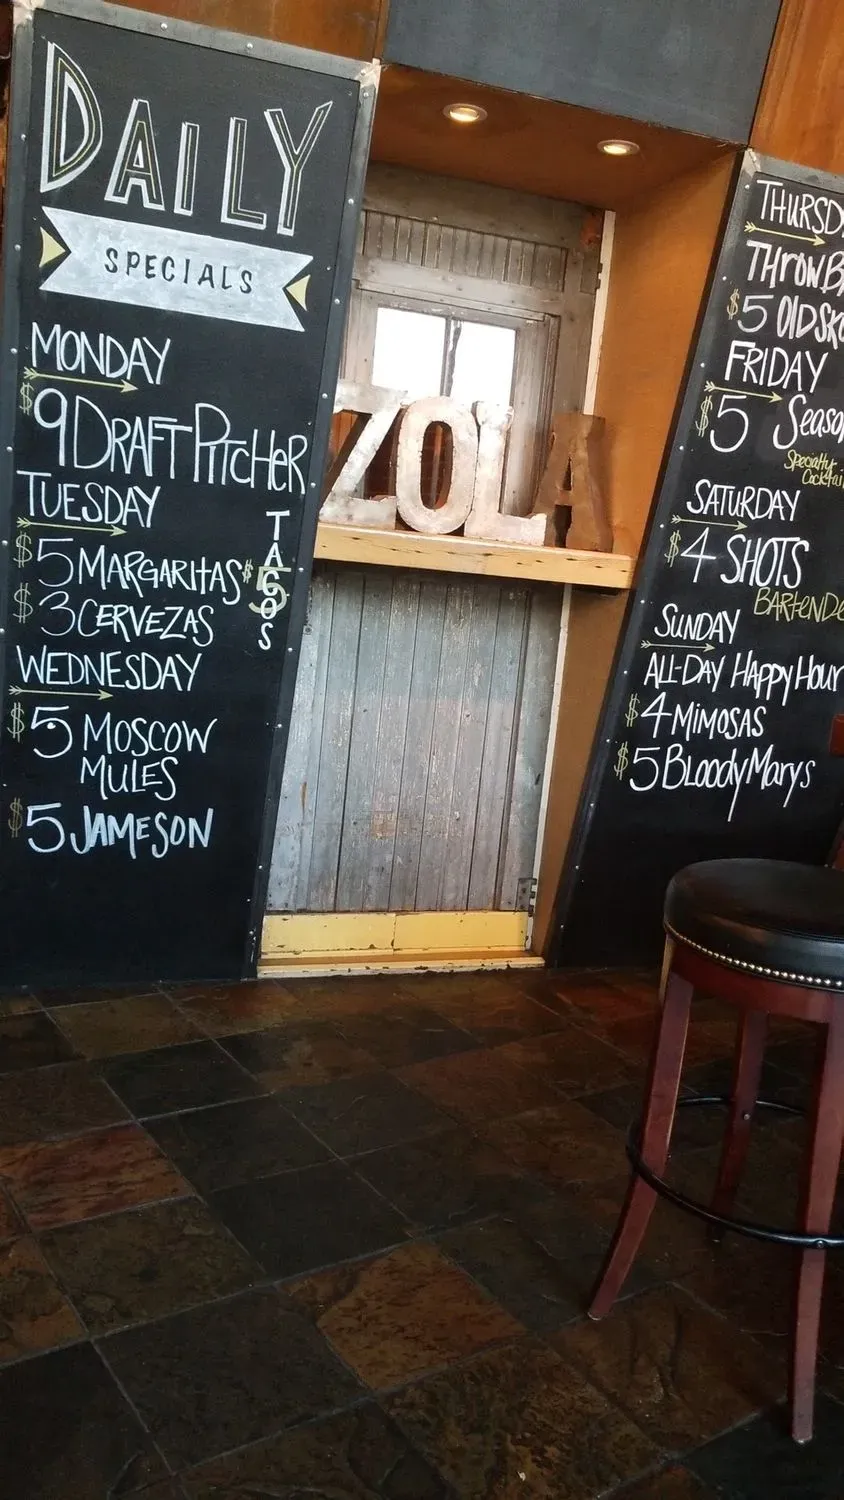 DAILY
SPECIALS
MONDAY
$9 DRAFT PITCHER
TUESDAY
$5 MARGARITAS
$3 CERVEZAS
$5 TACOS
WEDNESDAY
$5 MOSCOW
MULES
$5 JAMESON
ZOLA
THURSD
THROWB
$5 OLD SK
FRIDAY
$5 Seaso
Specialty
Cocktai
SATURDAY
$4 SHOTS
BARTENDE
SUNDAY
ALL-DAY HAPPY HOUR
$4 MIMOSAS
$5 Bloody Marys